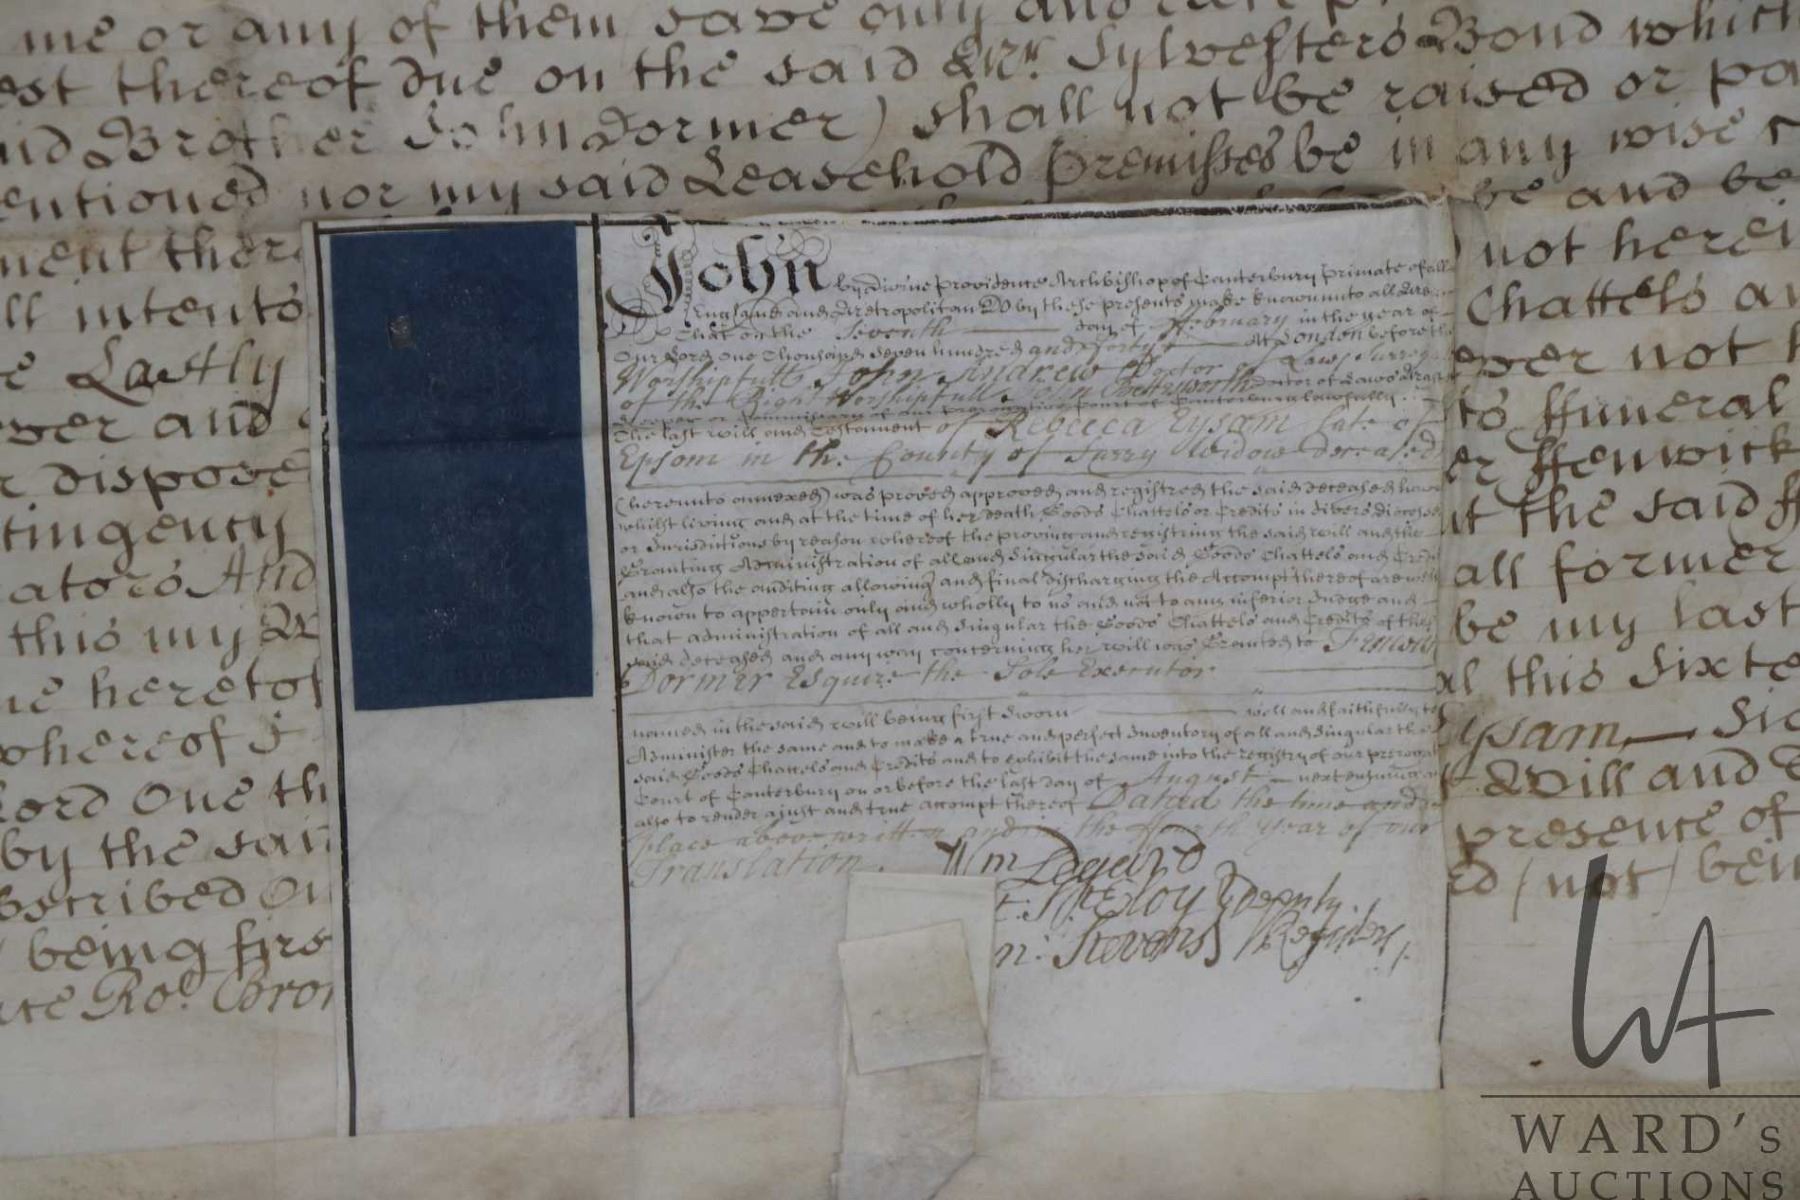 me or any of them save only and
est thereof due on the said Mr. Sylvesters Bond which
aid Brother John Dormer) shall not be raised or pa
entioned nor my said Leasehold Premisses be in any wise
ment there
ll intents
e Lastly
ver and
r dispose
tingency
ators And
this my W
ue heretof
whereof I
Lord One th
by the said
bscribed Ou
being firs
Ro. Cro
be and be
not herei
Chattels an
ever not
to ffuneral
er ffenwick
t the said ff
all former
be my last
al this Sixte
ysam Sig
Will and
presence of
ed (not) bein
John by divine providence Archbishop of Canterbury Primate of all
England and Metropolitan Do by these presents make known unto all Men
That on the Seventh day of ffebruary in the year of
Our Lord One Thousand Seven hundred and fforty At London before the
Worshipfull John Andrew Doctor of Laws Surrog
of the Right Worshipfull John Bettesworth Doctor of Laws Master
Keeper or Commissary of our Prerogative Court of Canterbury lawfully
The last will and Testament of Rebecca Eysam late of
Epsom in the County of Surry Widow deceased
(hereunto annexed) was proved approved and registred the said deceased have
whilst living and at the time of her death Goods Chattels or Credits in divers dioceses
or Jurisdictions by reason whereof the proving and registring the said will and the
Granting Administration of all and Singular the said Goods Chattels and Credi
and also the auditing allowing and final discharging the Accompt thereof are well
known to appertain only and wholly to us and not to any inferior Judge and
that administration of all and Singular the Goods Chattels and Credits of the
said deceased and any way concerning her will was Granted to Fenwick
Dormer Esquire the Sole Executor
named in the said will being first Sworn well and faithfully to
Administer the same and to make a true and perfect Inventory of all and Singular the
said Goods Chattels and Credits and to exhibit the same into the registry of our prerogat
Court of Canterbury on or before the last day of August next ensuing and
also to render a just and true accompt thereof Dated the time and
place above written and in the ffourth Year of our
Translation.
Wm Legard
Deputy
Stevens Registers.
WA
WARD's
AUCTIONS